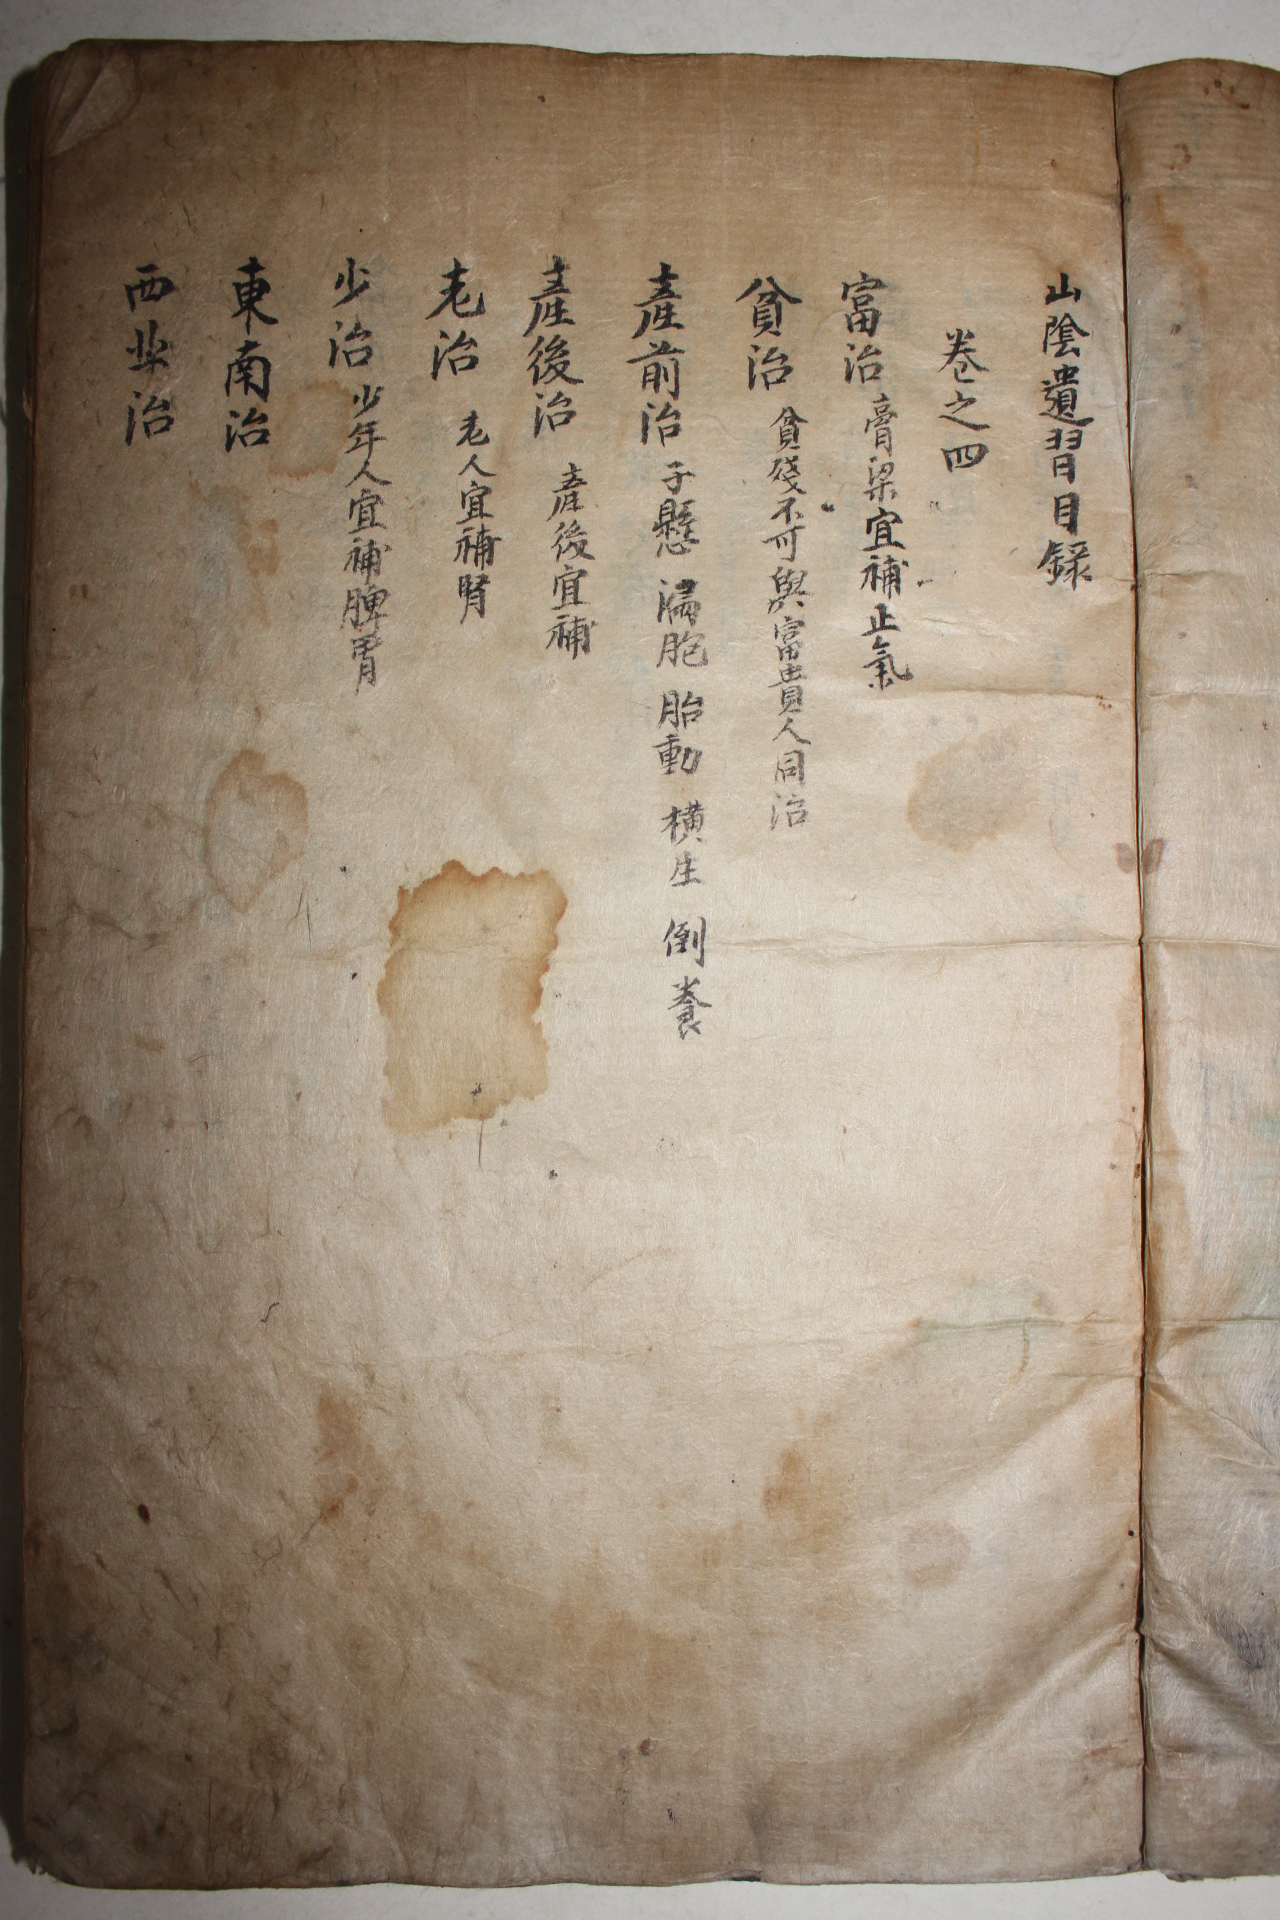 山陰遺習目錄
卷之四
富治 膏梁宜補止氣
貧治 貧殘不可與富貴人同治
產前治 子懸 漏胞 胎動 橫生 倒養
產後治 產後宜補
老治 老人宜補腎
少治 少年人宜補脾胃
東南治
西北治